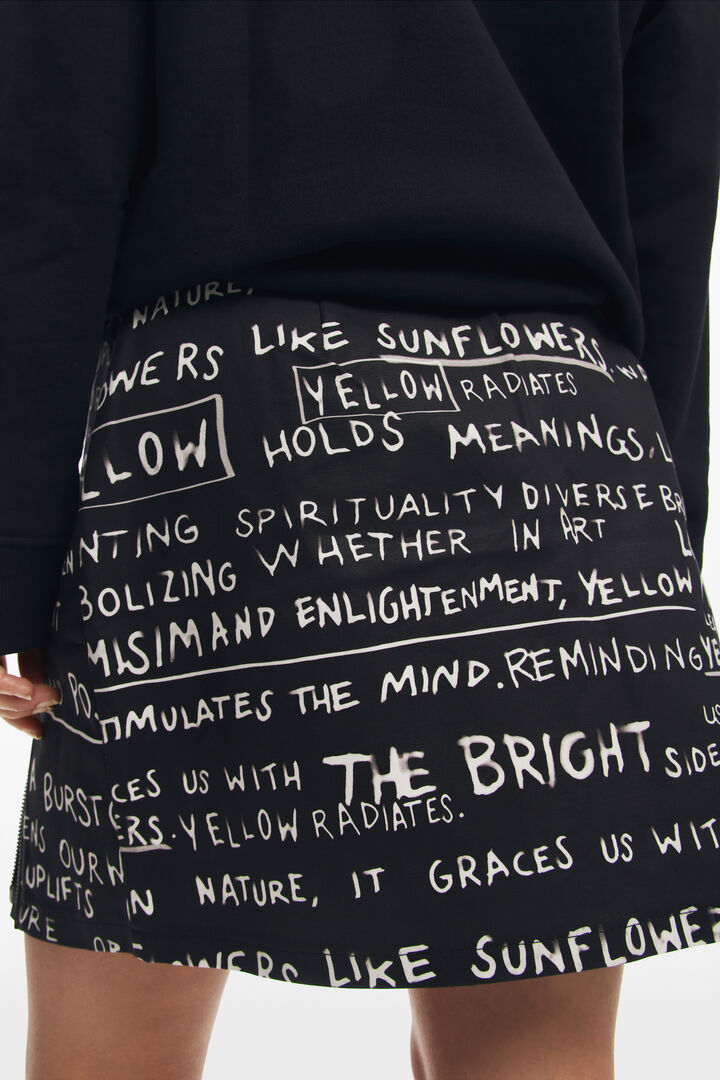 NATURE,
LIKE SUNFLOWERS.
OWERS
YELLOW RADIATES
LLOW HOLDS MEANINGS, L
NTING SPIRITUALITY DIVERSE BR
BOLIZING WHETHER IN ART L
MISIMAND ENLIGHTENMENT, YELLOW
TIMULATES THE MIND. REMINDING YE
PO
US
CES US WITH THE BRIGHT SIDE
A BURST
ERS. YELLOW RADIATES.
ENS OUR W
UPLIFTS IN NATURE, IT GRACES US WIT
URE OF
FLOWERS LIKE SUNFLOWER